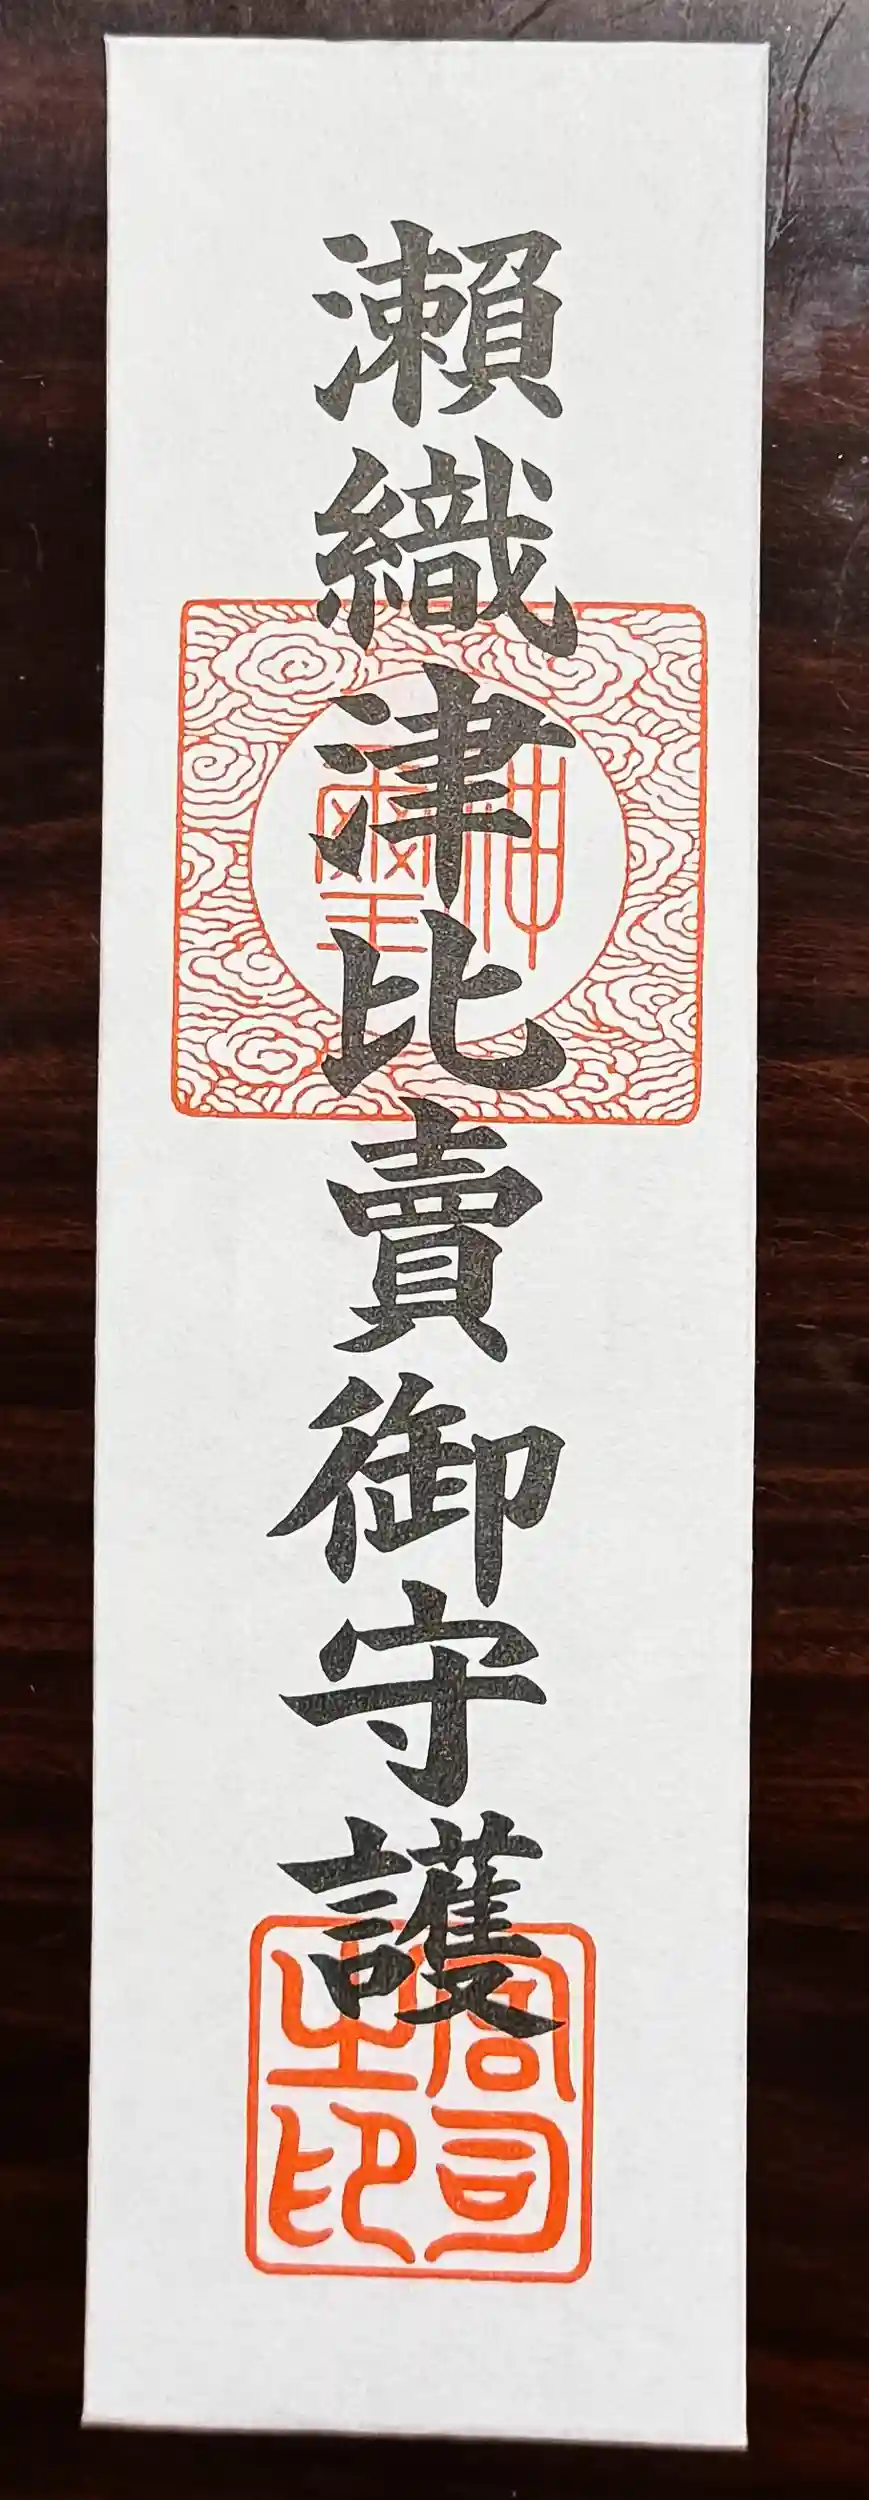 瀨織津比賣御守護
神璽
宮司之印